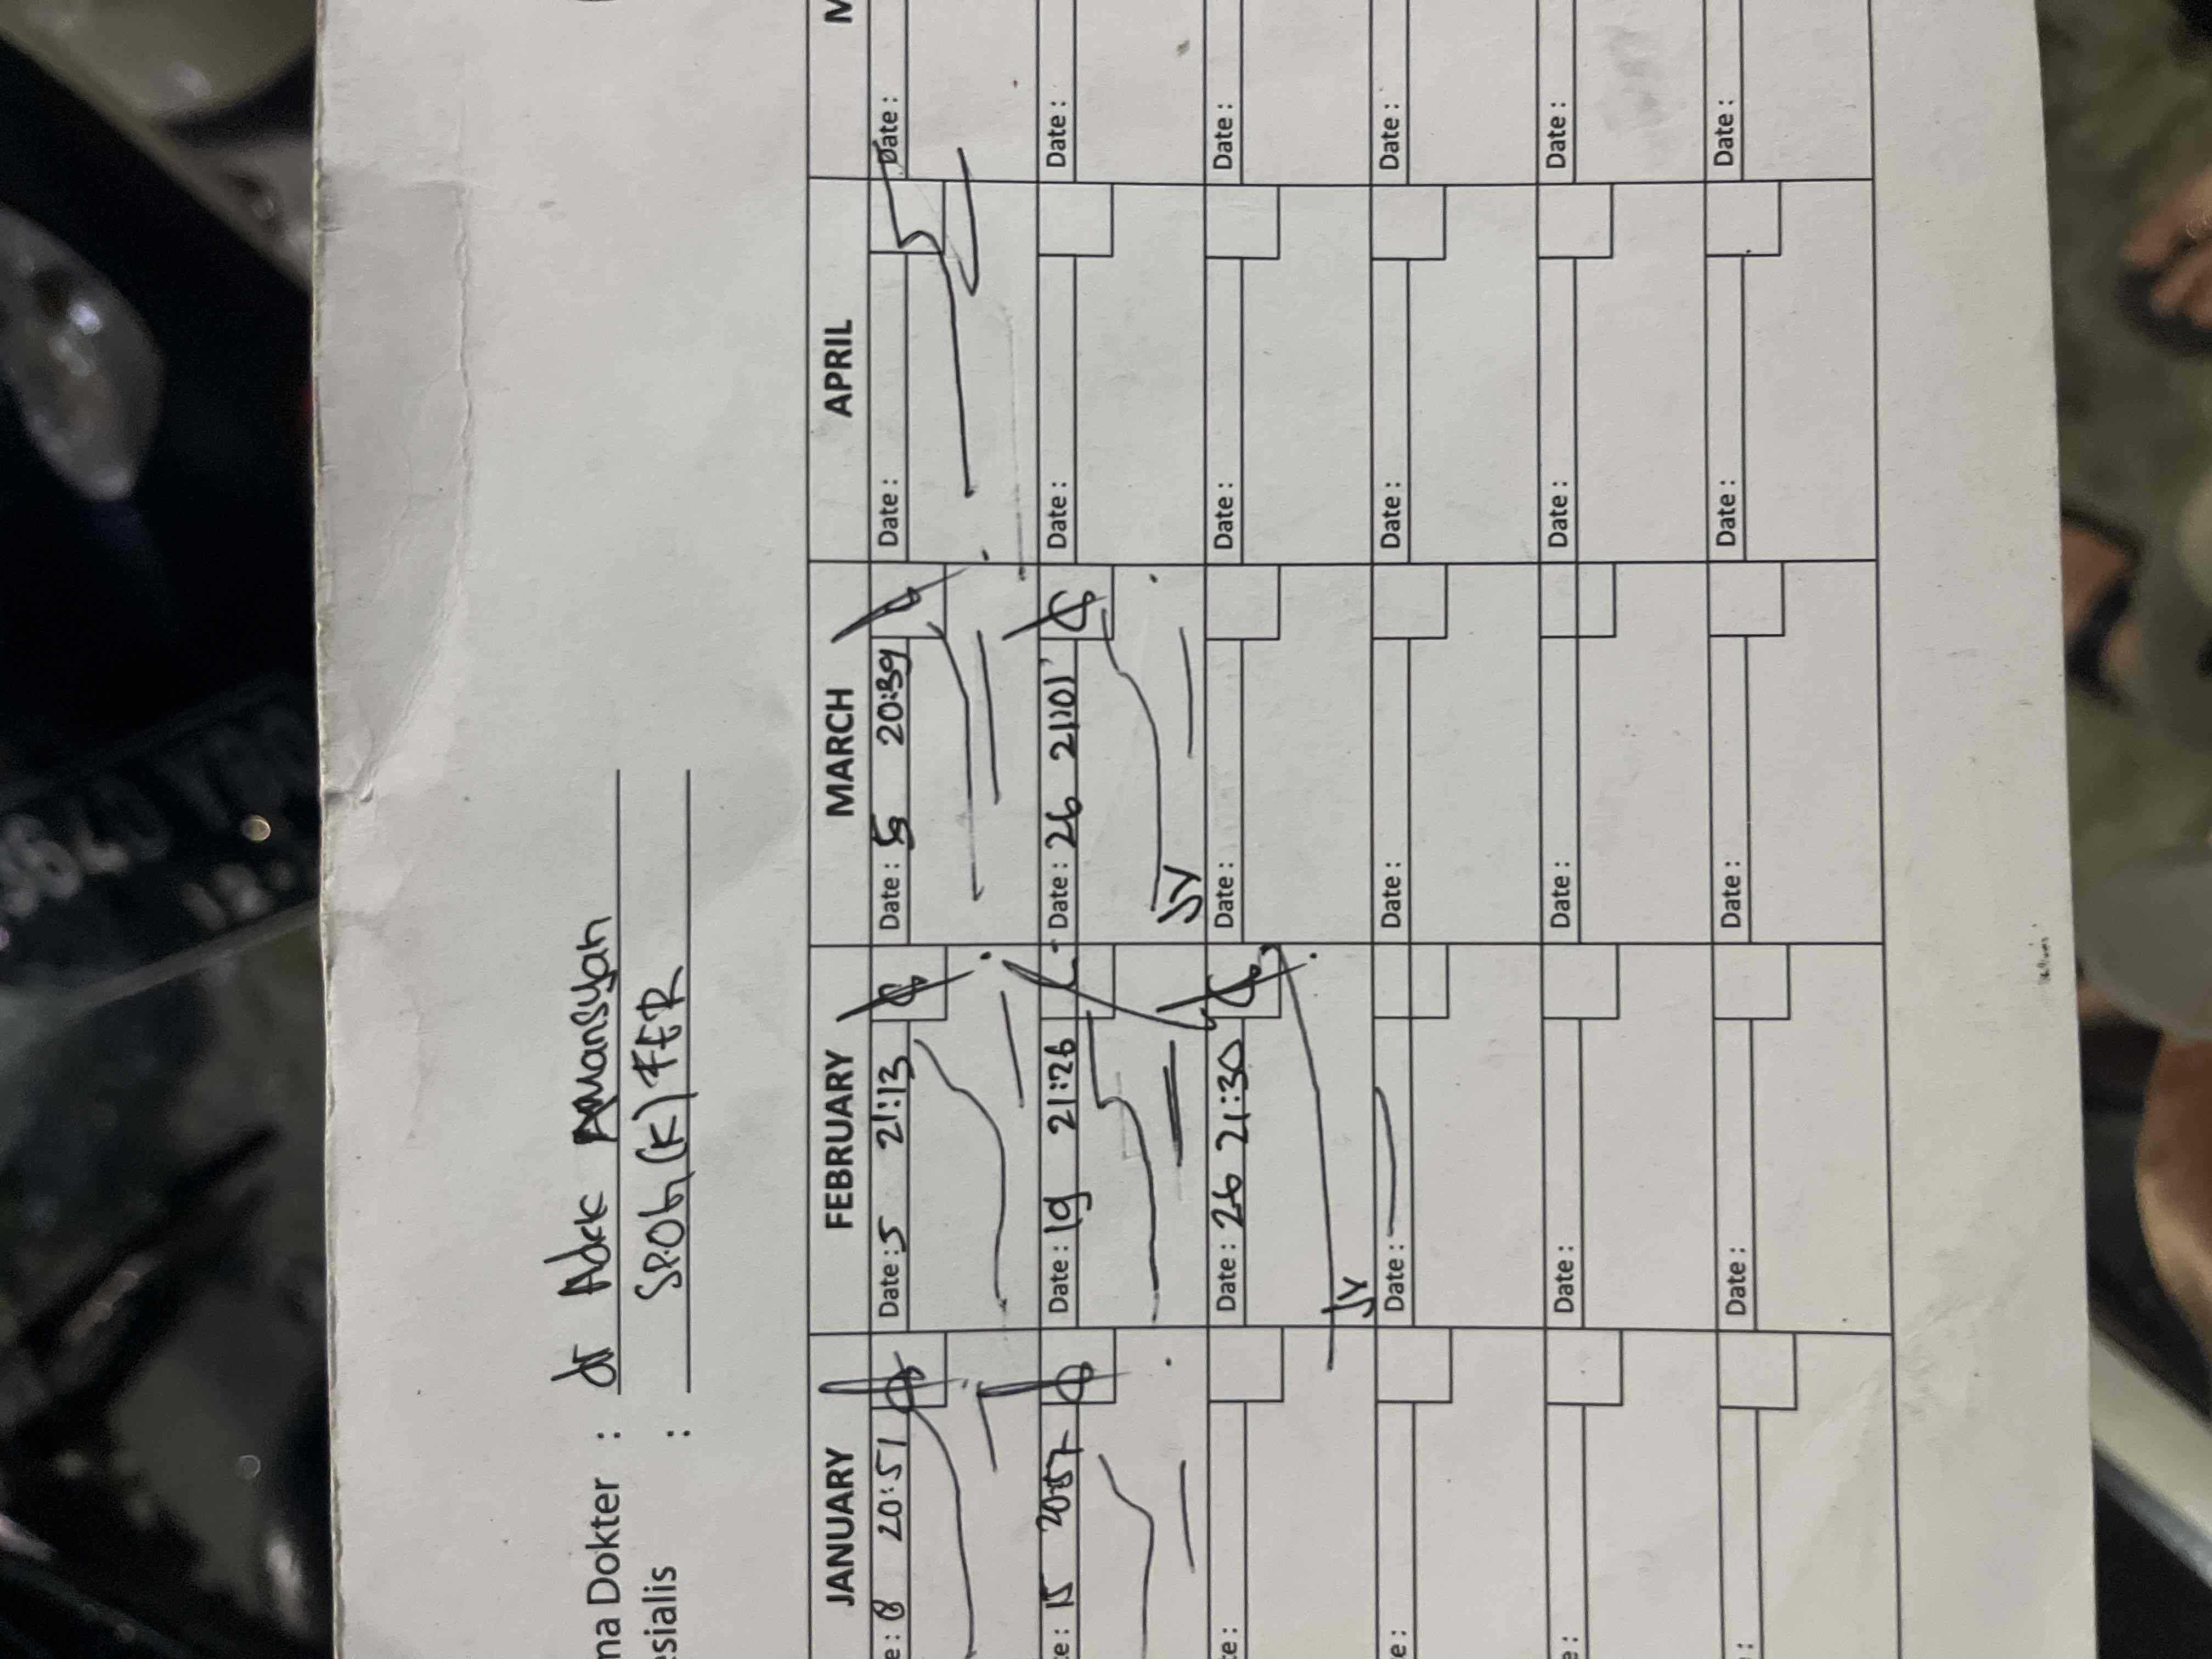 ma Dokter : dr Adek Amansyah
esialis : SP.OG(K) FER
JANUARY FEBRUARY MARCH APRIL M
e : 8 20:51 Date : 5 21:13 Date : 5 20:39 Date : Date :
te : 15 20:57 Date : 19 21:26 Date : 26 21:01 Date : Date :
te : Date : 26 21:30 Date : Date : Date :
e : Date : Date : Date : Date :
e : Date : Date : Date : Date :
: Date : Date : Date : Date :